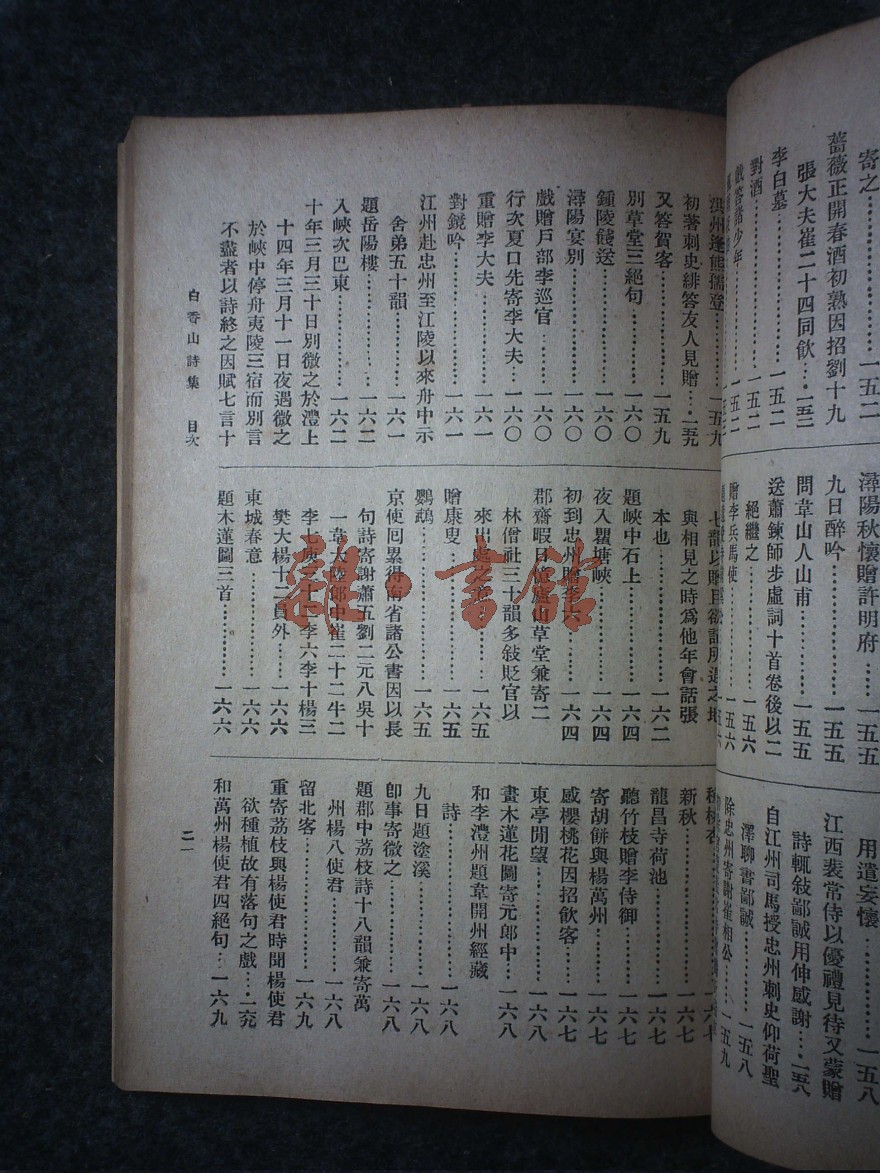 寄之……………一五二
薔薇正開春酒初熟因招劉十九
張大夫崔二十四同飲…·一五二
李白墓……………一五二
對酒……………一五二
戲答諸少年…………一五二
潯陽秋懷贈許明府……一五五
九日醉吟…………一五五
問韋山人山甫…………一五五
送蕭鍊師步虛詞十首卷後以二
絕繼之……………一五六
贈李兵馬使…………一五六
用遣妄懷…………一五八
江西裴常侍以優禮見待又蒙贈
詩輒敍鄙誠用伸感謝…·一五八
自江州司馬授忠州刺史仰荷聖
澤聊書鄙誠…………一五八
除忠州寄謝崔相公……一五九
洪州逢熊孺登…………一五九
初著刺史緋答友人見贈…·一五九
又答賀客……………一五九
別草堂三絕句…………一六〇
鍾陵餞送……………一六〇
潯陽宴別……………一六〇
戲贈戶部李巡官………一六〇
行次夏口先寄李大夫…一六〇
重贈李大夫…………一六一
對鏡吟……………一六一
江州赴忠州至江陵以來舟中示
舍弟五十韻…………一六一
題岳陽樓……………一六二
入峽次巴東…………一六二
十年三月三十日別微之於灃上
十四年三月十一日夜遇微之
於峽中停舟夷陵三宿而別言
不盡者以詩終之因賦七言十
七韻以贈且欲記所遇之地
與相見之時爲他年會話張
本也……………一六二
題峽中石上…………一六四
夜入瞿塘峽…………一六四
初到忠州贈李六………一六四
郡齋暇日憶廬山草堂兼寄二
林僧社三十韻多敍貶官以
來出處之意…………一六五
贈康叟……………一六五
鸚鵡……………一六五
京使回累得南省諸公書因以長
句詩寄謝蕭五劉二元八吳十
一韋大陸郎中崔二十二牛二
李七庾三十二李六李十楊三
樊大楊十二員外………一六六
東城春意……………一六六
題木蓮圖三首…………一六六
種桃杏……………一六七
新秋……………一六七
龍昌寺荷池…………一六七
聽竹枝贈李侍御………一六七
寄胡餅與楊萬州………一六七
感櫻桃花因招飲客……一六七
東亭閒望……………一六八
畫木蓮花圖寄元郎中…一六八
和李灃州題韋開州經藏
詩……………一六八
九日題塗溪…………一六八
卽事寄微之…………一六八
題郡中荔枝詩十八韻兼寄萬
州楊八使君…………一六八
留北客……………一六九
重寄荔枝與楊使君時聞楊使君
欲種植故有落句之戲…·一六九
和萬州楊使君四絕句…一六九
白香山詩集　目次
二一